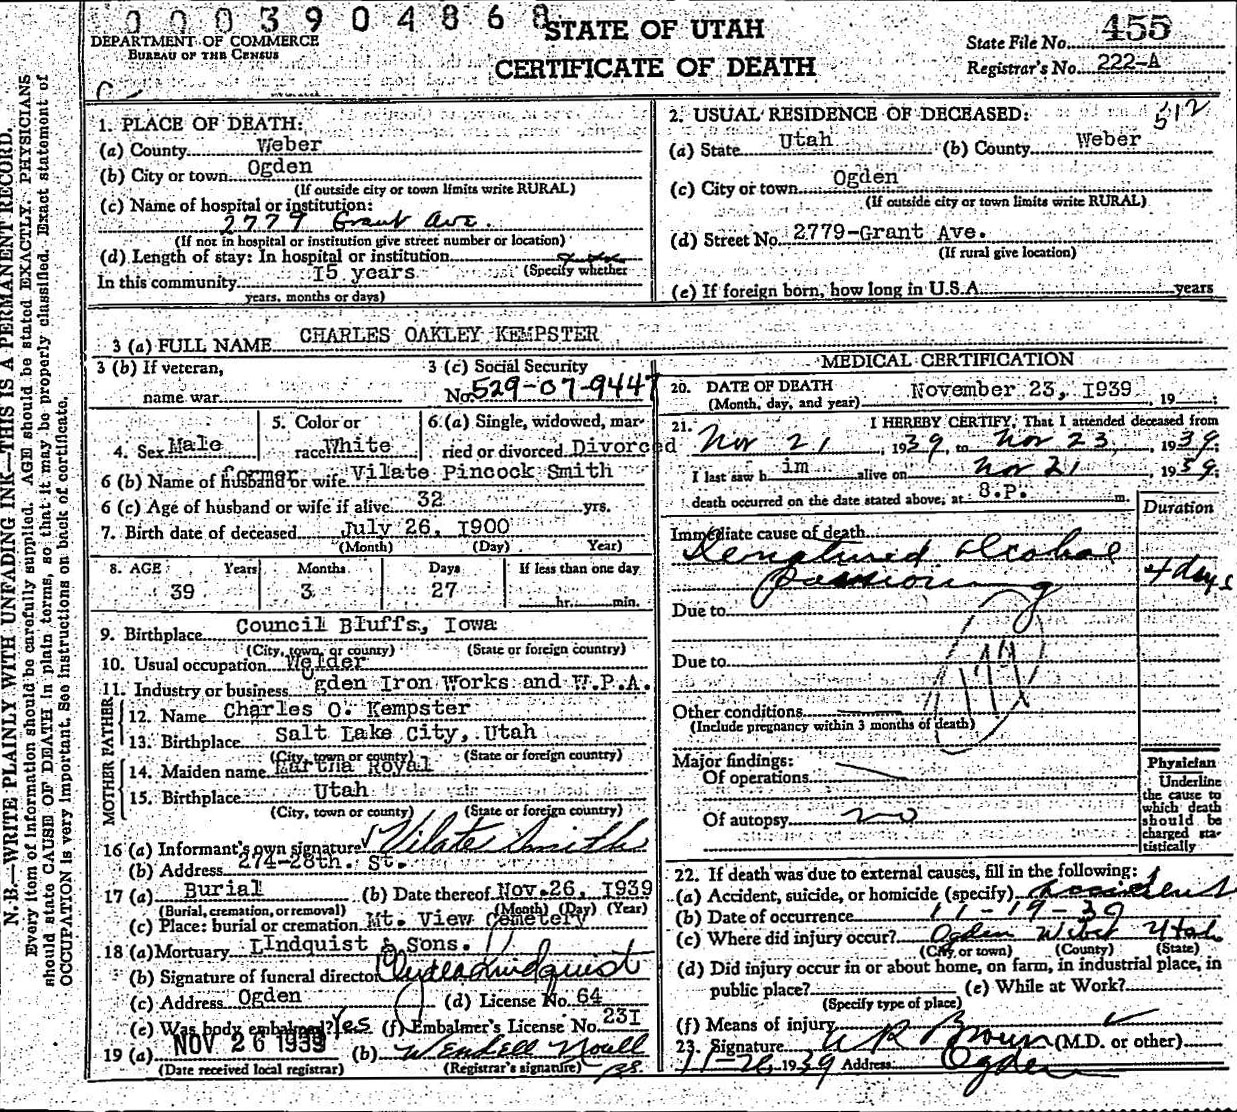 0003904868
STATE OF UTAH
CERTIFICATE OF DEATH
DEPARTMENT OF COMMERCE
BUREAU OF THE CENSUS
State File No. 455
Registrar's No. 222-A
N.B.—WRITE PLAINLY WITH UNFADING INK—THIS IS A PERMANENT RECORD.
Every item of information should be carefully supplied. AGE should be stated EXACTLY. PHYSICIANS
should state CAUSE OF DEATH in plain terms, so that it may be properly classified. Exact statement of
OCCUPATION is very important. See instructions on back of certificate.
1. PLACE OF DEATH:
(a) County Weber
(b) City or town Ogden
(If outside city or town limits write RURAL)
(c) Name of hospital or institution:
2779 Grant Ave.
(If not in hospital or institution give street number or location)
(d) Length of stay: In hospital or institution
(Specify whether
In this community 15 years
years, months or days)
2. USUAL RESIDENCE OF DECEASED: 512
(a) State Utah (b) County Weber
(c) City or town Ogden
(If outside city or town limits write RURAL)
(d) Street No. 2779-Grant Ave.
(If rural give location)
(e) If foreign born, how long in U.S.A. years
3 (a) FULL NAME CHARLES OAKLEY KEMPSTER
3 (b) If veteran,
name war
3 (c) Social Security
No. 529-07-9447
4. Sex Male
5. Color or
race White
6 (a) Single, widowed, mar-
ried or divorced Divorced
6 (b) Name of former husband or wife Vilate Pincock Smith
6 (c) Age of husband or wife if alive 32 yrs.
7. Birth date of deceased July 26, 1900
(Month) (Day) Year)
8. AGE Years Months Days If less than one day
39 3 27 hr. min.
9. Birthplace Council Bluffs, Iowa
(City, town, or county) (State or foreign country)
10. Usual occupation Welder
11. Industry or business Ogden Iron Works and W.P.A.
FATHER
12. Name Charles O. Kempster
13. Birthplace Salt Lake City, Utah
(City, town or county) (State or foreign country)
MOTHER
14. Maiden name Martha Royal
15. Birthplace Utah
(City, town or county) (State or foreign country)
16 (a) Informant's own signature Vilate Smith
(b) Address 274-28th. St.
17 (a) Burial (b) Date thereof Nov. 26, 1939
(Burial, cremation, or removal) (Month) (Day) (Year)
(c) Place: burial or cremation Mt. View Cemetery
18 (a) Mortuary Lindquist & Sons.
(b) Signature of funeral director Clyde Lindquist
(c) Address Ogden (d) License No. 64
(e) Was body embalmed? Yes (f) Embalmer's License No. 231
19 (a) NOV 26 1939 (b) Wendell Noall
(Date received local registrar) (Registrar's signature)
MEDICAL CERTIFICATION
20. DATE OF DEATH November 23, 1939, 19
(Month, day, and year)
21. I HEREBY CERTIFY, That I attended deceased from
Nov 21, 1939, to Nov 23, 1939.
I last saw him alive on Nov 21 1939.
death occurred on the date stated above, at 8.P. m.
Duration
Immediate cause of death
Denatured Alcohol
poisoning 4 days
Due to
Due to
179
Other conditions
(Include pregnancy within 3 months of death)
Major findings:
Of operations
Of autopsy no
Physician
Underline
the cause to
which death
should be
charged sta-
tistically
22. If death was due to external causes, fill in the following:
(a) Accident, suicide, or homicide (specify) Accident
(b) Date of occurrence 11-19-39
(c) Where did injury occur? Ogden Weber Utah
(City or town) (County) (State)
(d) Did injury occur in or about home, on farm, in industrial place, in
public place? (e) While at Work?
(Specify type of place)
(f) Means of injury
23. Signature W R Brown (M.D. or other)
11-26, 1939 Address Ogden